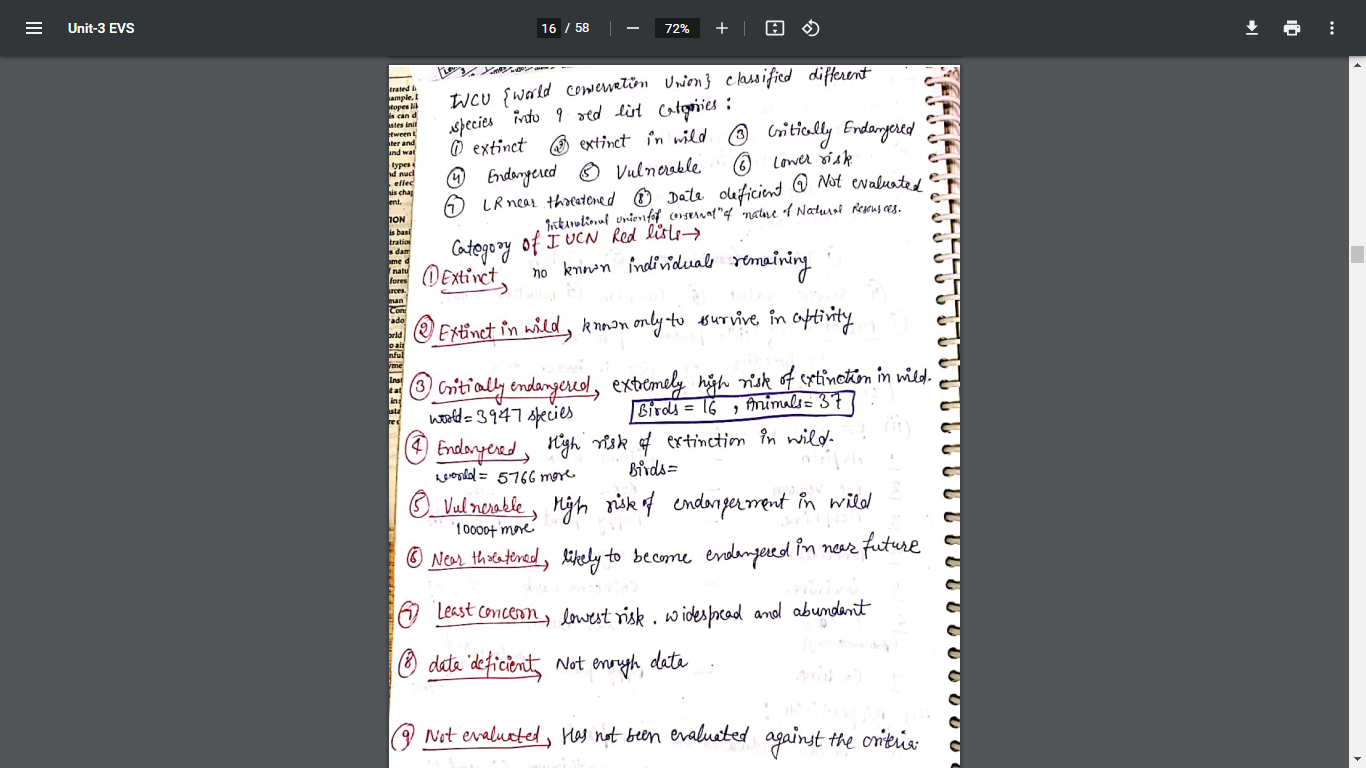 Unit-3 EVS
16 / 58
72%
IWCU {World conservation Union} classified different
species into 9 red list Catgories :
① extinct ② extinct in wild ③ Critically Endangered
④ Endangered ⑤ Vulnerable ⑥ Lower risk
⑦ LR near threatened ⑧ Date deficient ⑨ Not evaluated
International union for conservatn of nature & Natural Resources.
Category of IUCN Red lists→
① Extinct, no known individuals remaining
② Extinct in wild, known only to survive in captivity
③ Critically endangered, extremely high risk of extinction in wild.
world = 3947 species Birds = 16 , Animals = 37
④ Endangered, High risk of extinction in wild.
world = 5766 more Birds =
⑤ Vulnerable, High risk of endangerment in wild
10000+ more
⑥ Near threatened, likely to become endangered in near future
⑦ Least concern, lowest risk. widespread and abundant
⑧ data deficient, Not enough data
⑨ Not evaluated, Has not been evaluated against the criteria.